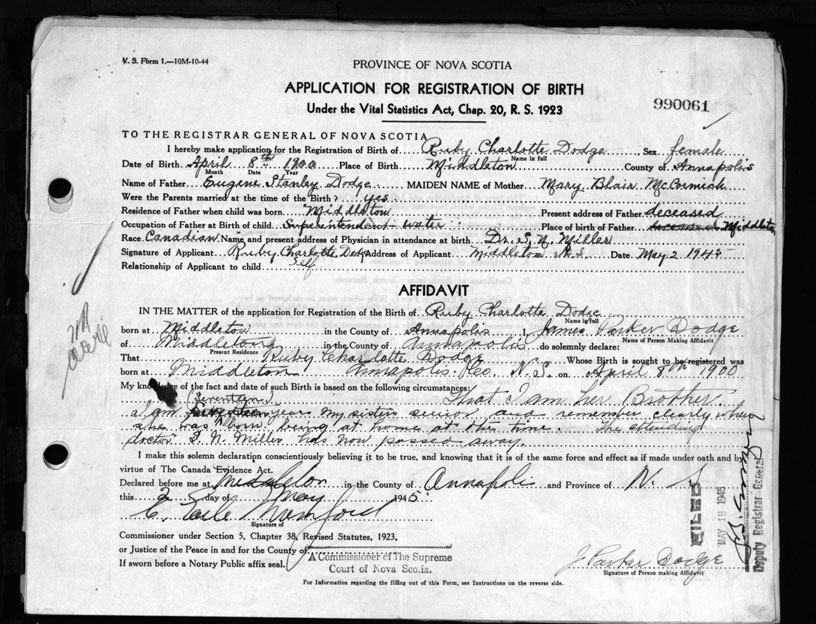 V. S. Form 1.—10M-10-44
PROVINCE OF NOVA SCOTIA
APPLICATION FOR REGISTRATION OF BIRTH
Under the Vital Statistics Act, Chap. 20, R. S. 1923
990061
TO THE REGISTRAR GENERAL OF NOVA SCOTIA
I hereby make application for the Registration of Birth of Ruby Charlotte Dodge, Sex female
Name in full
Date of Birth April 8th 1900 Place of Birth Middleton County of Annapolis
Month Date Year
Name of Father Eugene Stanley Dodge MAIDEN NAME of Mother Mary Blair McCormick
Were the Parents married at the time of the Birth? yes
Residence of Father when child was born Middleton Present address of Father deceased
Occupation of Father at Birth of child Superintendent water Place of birth of Father deceased Middleton
Race Canadian Name and present address of Physician in attendance at birth Dr. S. N. Miller
Signature of Applicant Ruby Charlotte Address of Applicant Middleton N.S. Date May 2 1945
Relationship of Applicant to child Self
AFFIDAVIT
IN THE MATTER of the application for Registration of the Birth of Ruby Charlotte Dodge
Name in full
born at Middleton in the County of Annapolis I, James Parker Dodge
Name of Person Making Affidavit
of Middleton in the County of Annapolis do solemnly declare:
Present Residence
That Ruby Charlotte Dodge Whose Birth is sought to be registered was
born at Middleton Annapolis Co. N.S. on April 8th 1900
My knowledge of the fact and date of such Birth is based on the following circumstances: That I am her Brother
(Seventeen
a am years my sisters senior and remember clearly when
she was born being at home at the time. The attending
doctor S. N. Miller has now passed away.
I make this solemn declaration conscientiously believing it to be true, and knowing that it is of the same force and effect as if made under oath and by
virtue of The Canada Evidence Act.
Declared before me at Middleton in the County of Annapolis and Province of N. S.
this 2 day of May 1945
C. Earle Mumford
Signature of
Commissioner under Section 5, Chapter 38, Revised Statutes, 1923,
or Justice of the Peace in and for the County of
If sworn before a Notary Public affix seal.
A Commissioner of The Supreme
Court of Nova Scotia.
J. Parker Dodge
Signature of Person making Affidavit
For Information regarding the filling out of this Form, see Instructions on the reverse side.
FILED
MAY 18 1945
Deputy Registrar General